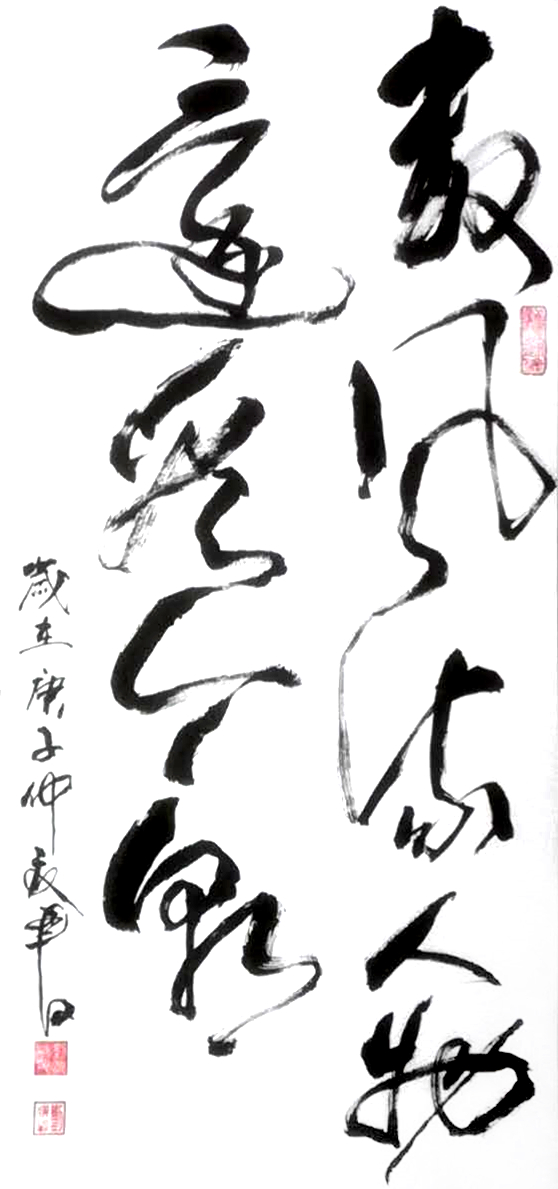 數風流人物
還看今朝
歲在庚子仲夏